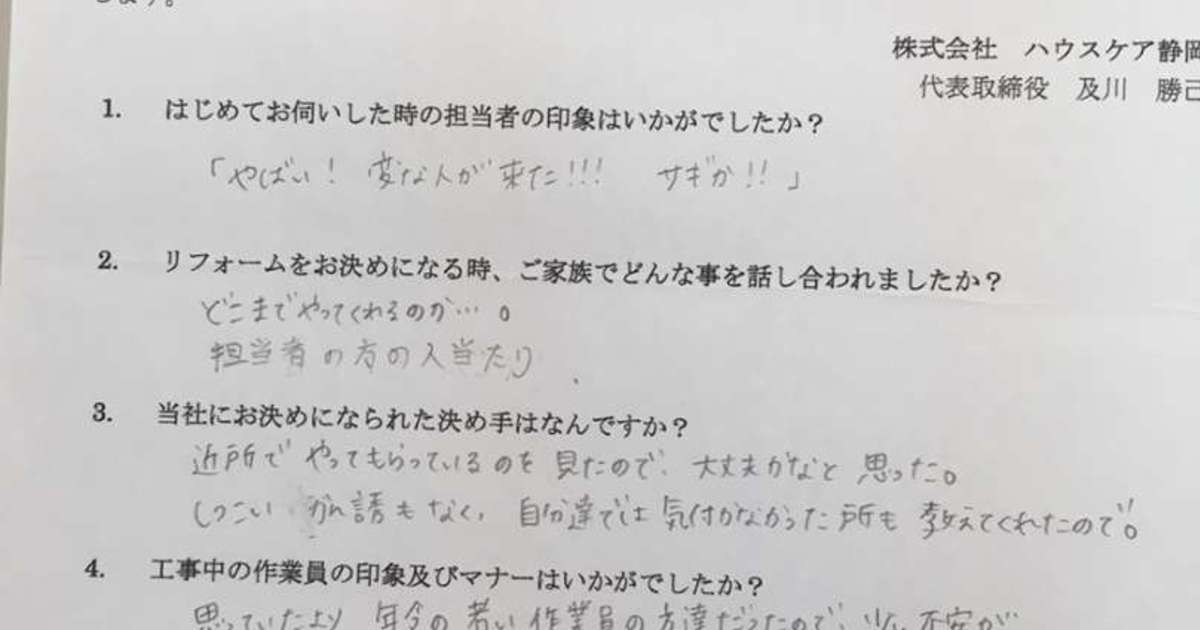 します。
株式会社 ハウスケア静岡
代表取締役 及川 勝己
1. はじめてお伺いした時の担当者の印象はいかがでしたか？
「やばい! 変な人が来た!!! サギか!!」
2. リフォームをお決めになる時、ご家族でどんな事を話し合われましたか？
どこまでやってくれるのか…。
担当者の方の人当たり
3. 当社にお決めになられた決め手はなんですか？
近所でやってもらっているのを見たので、大丈夫かなと思った。
しつこい 勧誘もなく、自分達では気付かなかった所も教えてくれたので。
4. 工事中の作業員の印象及びマナーはいかがでしたか？
思っていたより 年令の若い作業員の方達だったので、少し不安が